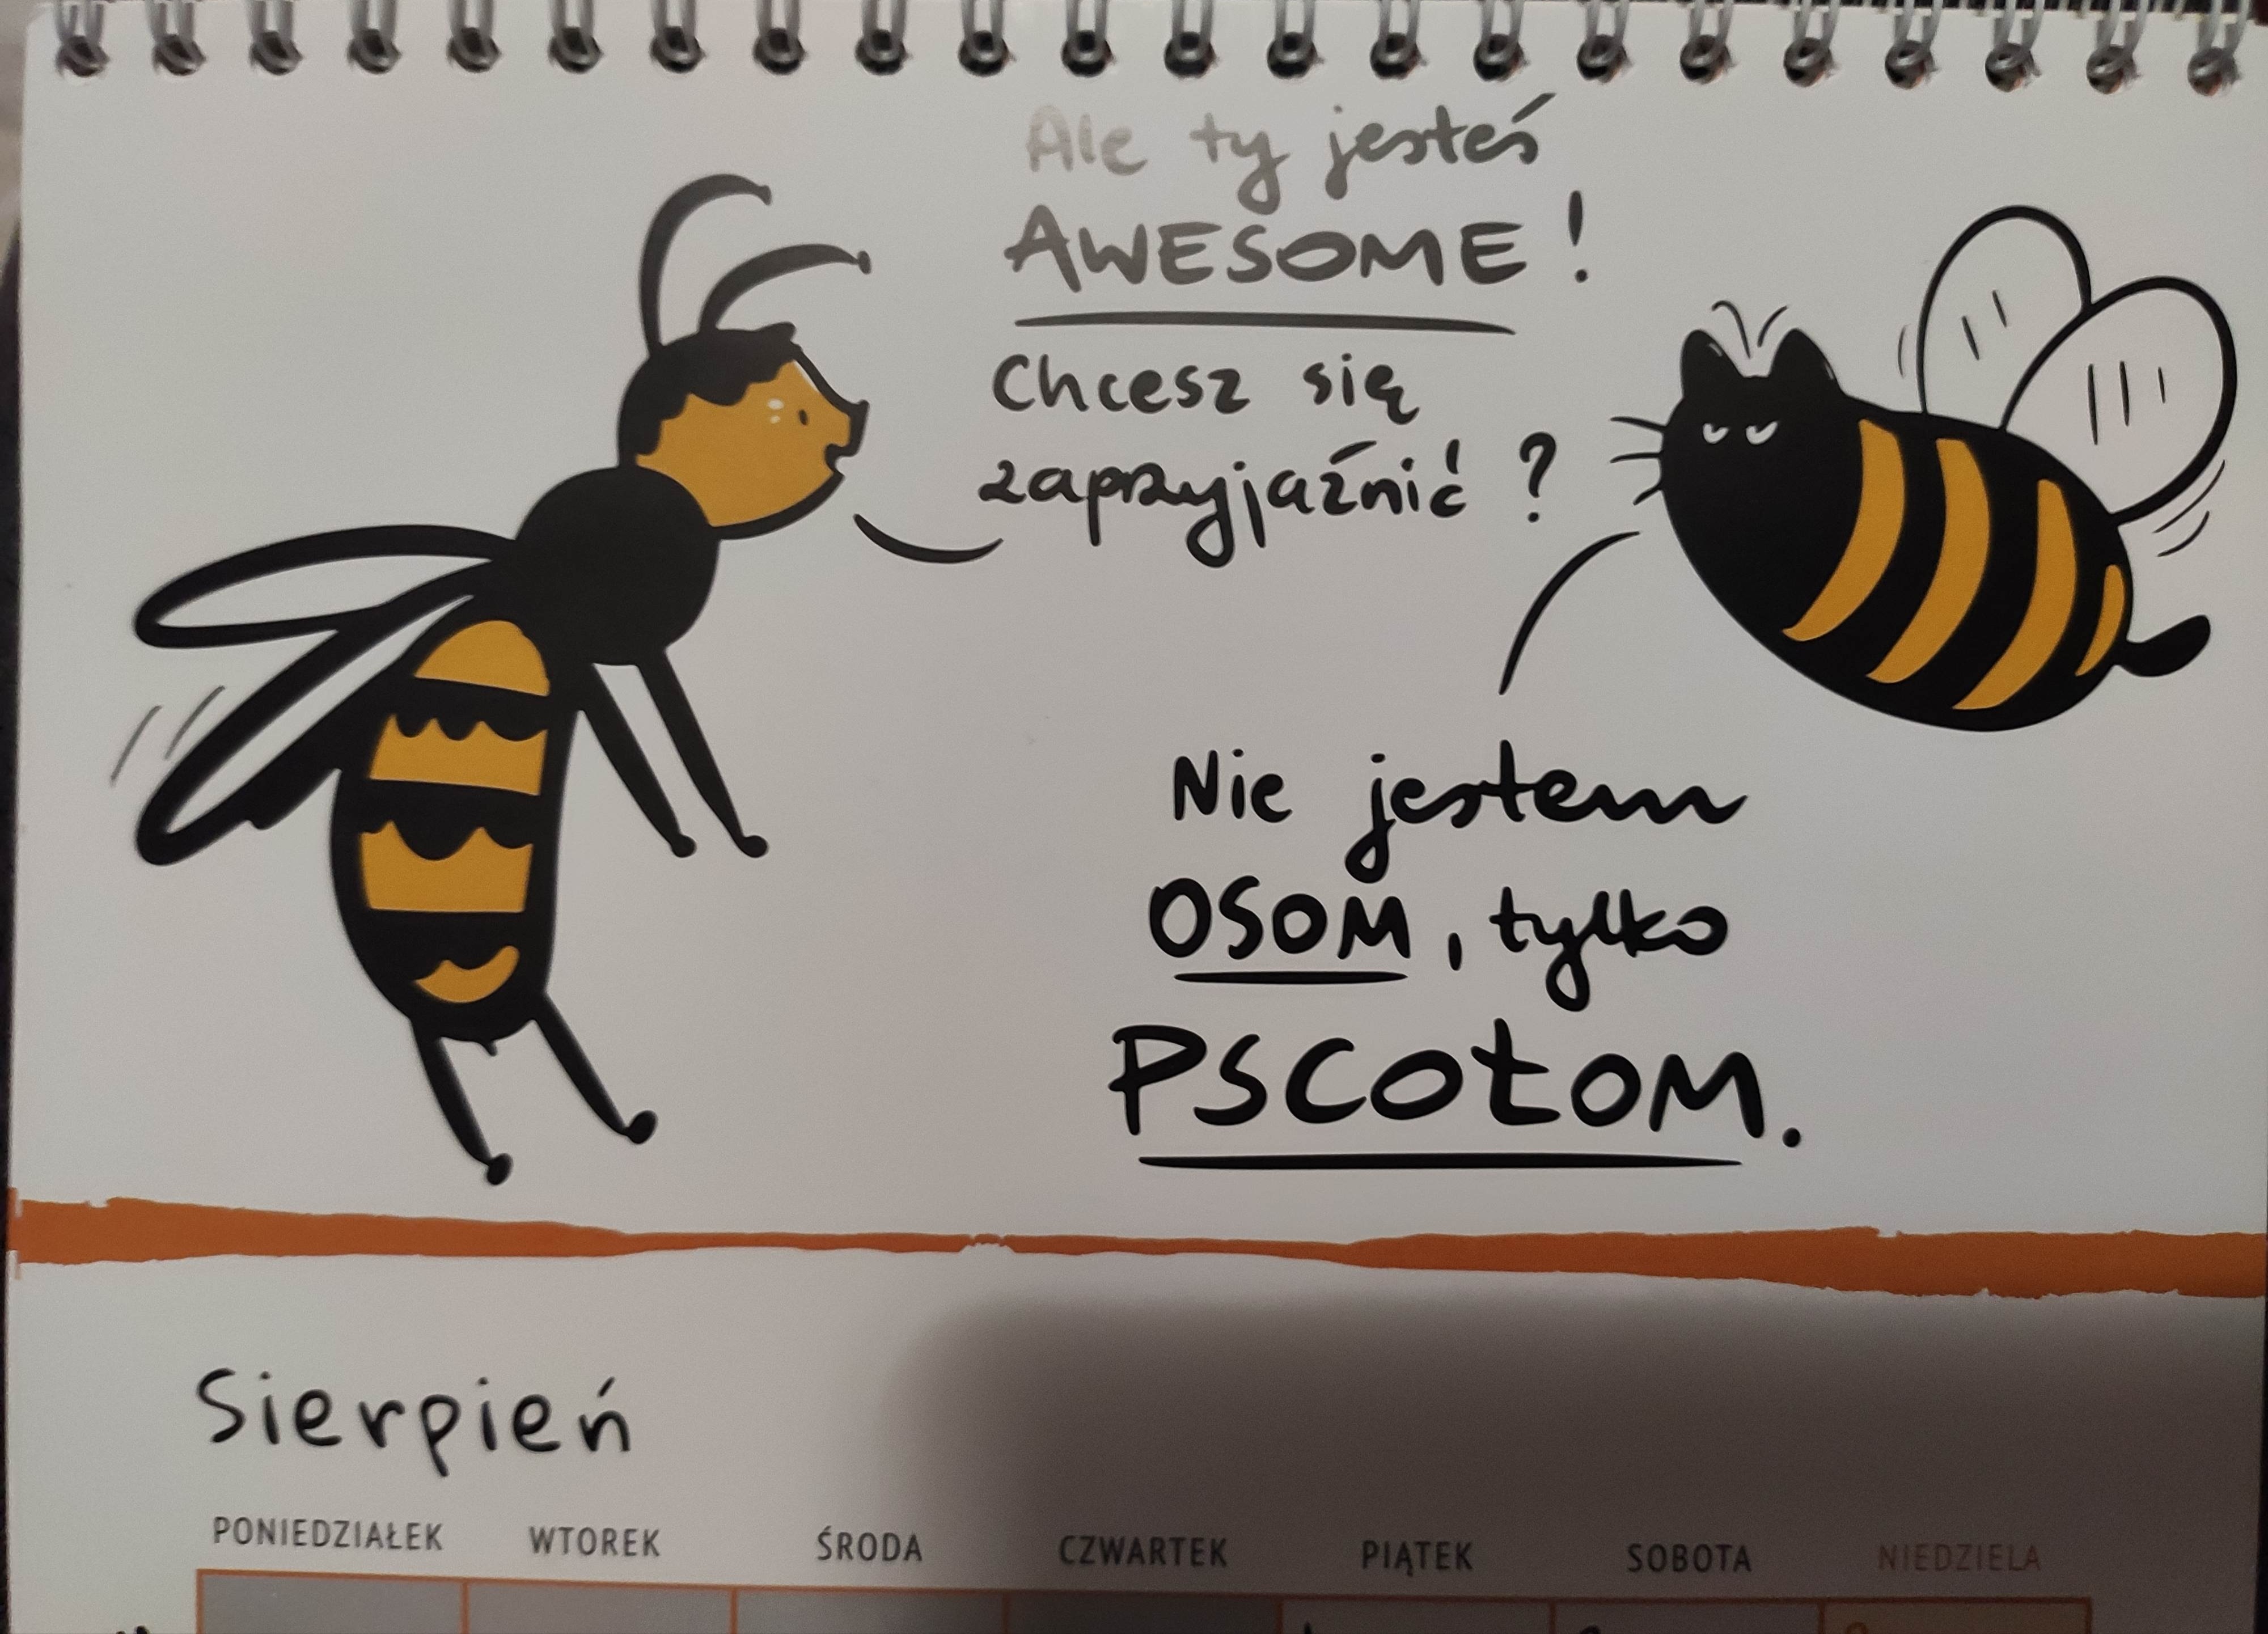 Ale ty jesteś
AWESOME!
Chcesz się
zaprzyjaźnić?
Nie jestem
OSOM, tylko
PSCOŁOM.
Sierpień
PONIEDZIAŁEK WTOREK ŚRODA CZWARTEK PIĄTEK SOBOTA NIEDZIELA